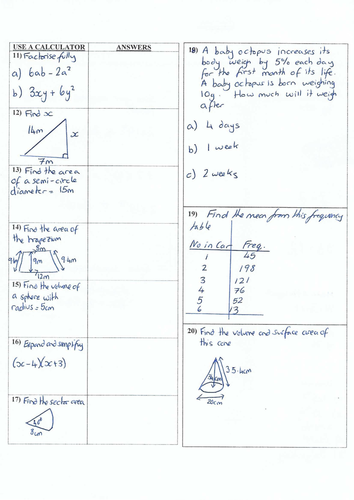 USE A CALCULATOR
ANSWERS
11) Factorise fully
a) 6ab - 2a²
b) 3xy + 6y²
12) Find x
14m
x
7m
13) Find the area
of a semi-circle
diameter = 15m
14) Find the area of
the trapezium
8m
9m
9.4m
12m
15) Find the volume of
a sphere with
radius = 5cm
16) Expand and simplify
(x - 4)(x + 3)
17) Find the sector area
8cm
18) A baby octopus increases its
body weigh by 5% each day
for the first month of its life.
A baby octopus is born weighing
10g. How much will it weigh
after
a) 4 days
b) 1 week
c) 2 weeks
19) Find the mean from this frequency
table
No in Car Freq.
1 45
2 198
3 121
4 76
5 52
6 13
20) Find the volume and surface area of
this cone
35.4cm
20cm